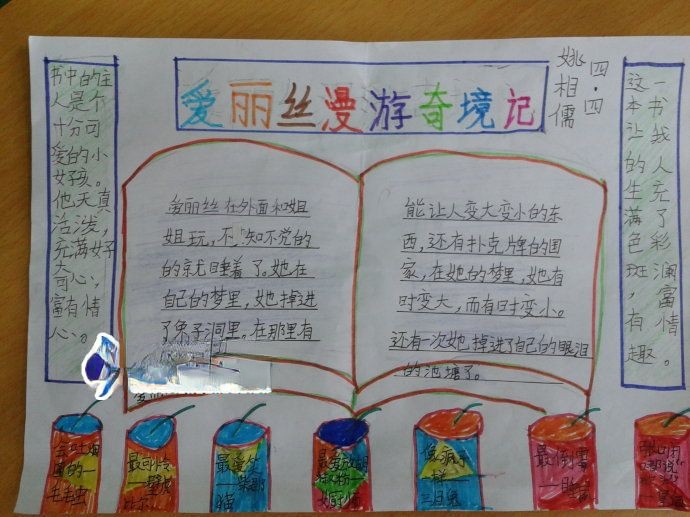 爱丽丝漫游奇境记
四·四
姚相儒
书中的主
人是个
十分可
爱的小
女孩。
他天真
活泼，
充满好
奇心，
富有情
心。
爱丽丝在外面和姐
姐玩，不知不觉的
的就睡着了。她在
自己的梦里，她掉进
了兔子洞里。在那里有
能让人变大变小的东
西，还有扑克牌的国
家，在她的梦里，她有
时变大，而有时变小。
还有一次她掉进了自己的眼泪
的池塘了。
一书我人充了彩澜富情。
这本让的生满色斑，有趣
会吐烟
圈的一
毛毛虫
最可怜
最爱笑
猫
最爱放胡
椒粉一
女厨师
像疯子
一样一
三月兔
最倒霉